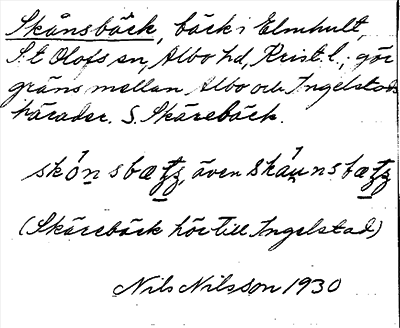 Skånsbäck, bäck i Elmhult,
S:t Olofs sn, Albo hd, Krist. l., gör
gräns mellan Albo och Ingelstads
härader. S. Skärebäck.
även
(Skärebäck hör till Ingelstad)
Nils Nilsson 1930